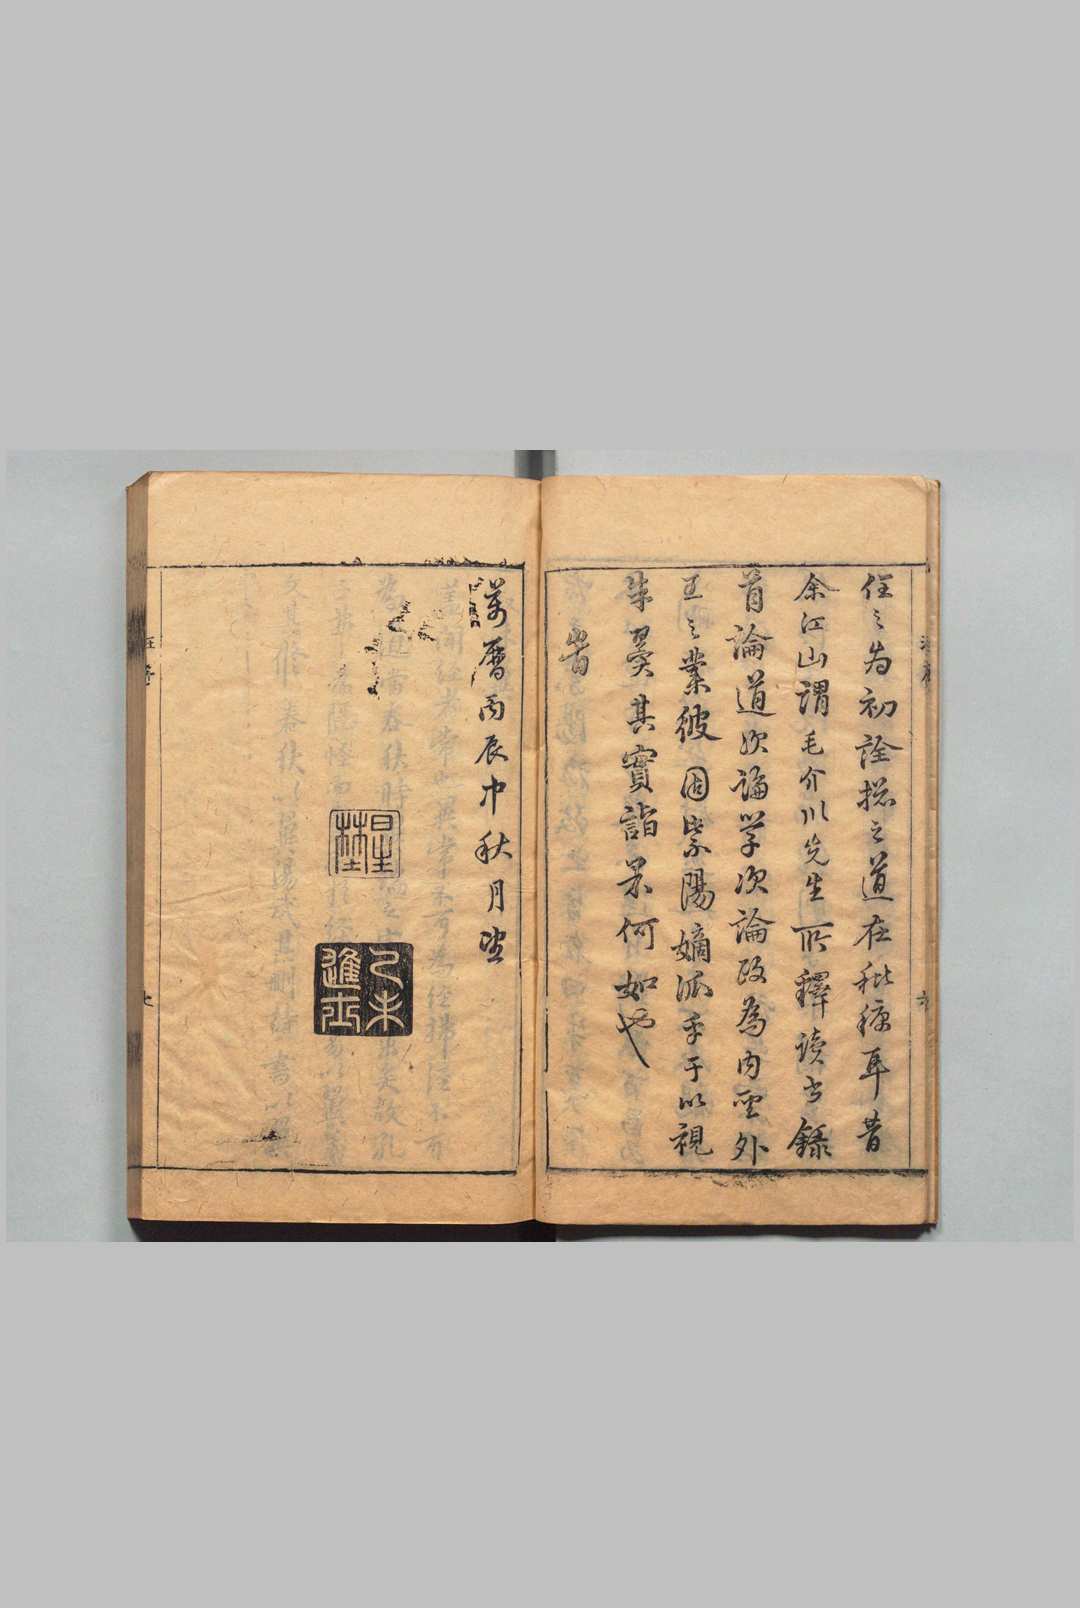 任之為初詮捴之道在秕穅耳昔
余江山謂毛介川先生所釋讀书錄
首論道次論学次論政為内聖外
王之業彼固紫陽嫡派乎于以視
朱翼其實詣果何如也
旹
萬曆丙辰中秋月望
星
己未
進士